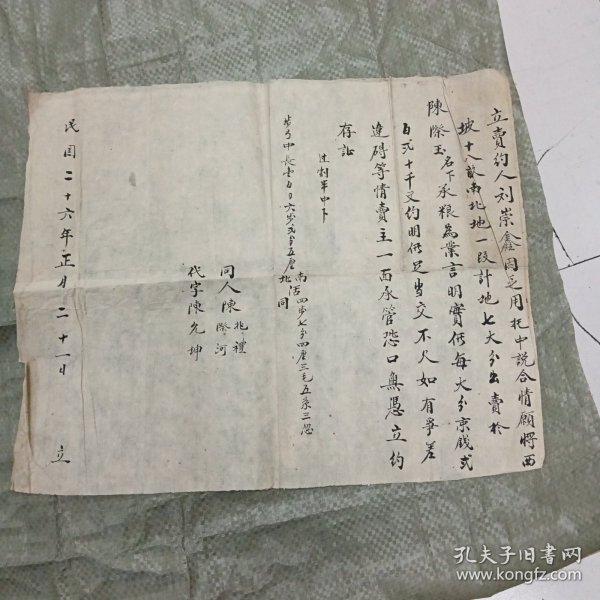 立賣約人刘崇鑫因乏用托中説合情願将西
坡十八畝南北地一段計地七大分出賣於
陳際玉名下承粮為業言明賣價每大分京錢弍
百弍十千文約明價足当交不欠如有爭差
違碍等情賣主一面承管恐口無憑立約
存証
过割年中卜
步弓中長壱百〇六步弍分五厘南活四步七分四厘三毛五系三忽
北同
同人陳兆禮
際河
代字陳允坤
民国二十六年正月二十一日 立
孔夫子旧書网
www.kongfz.com